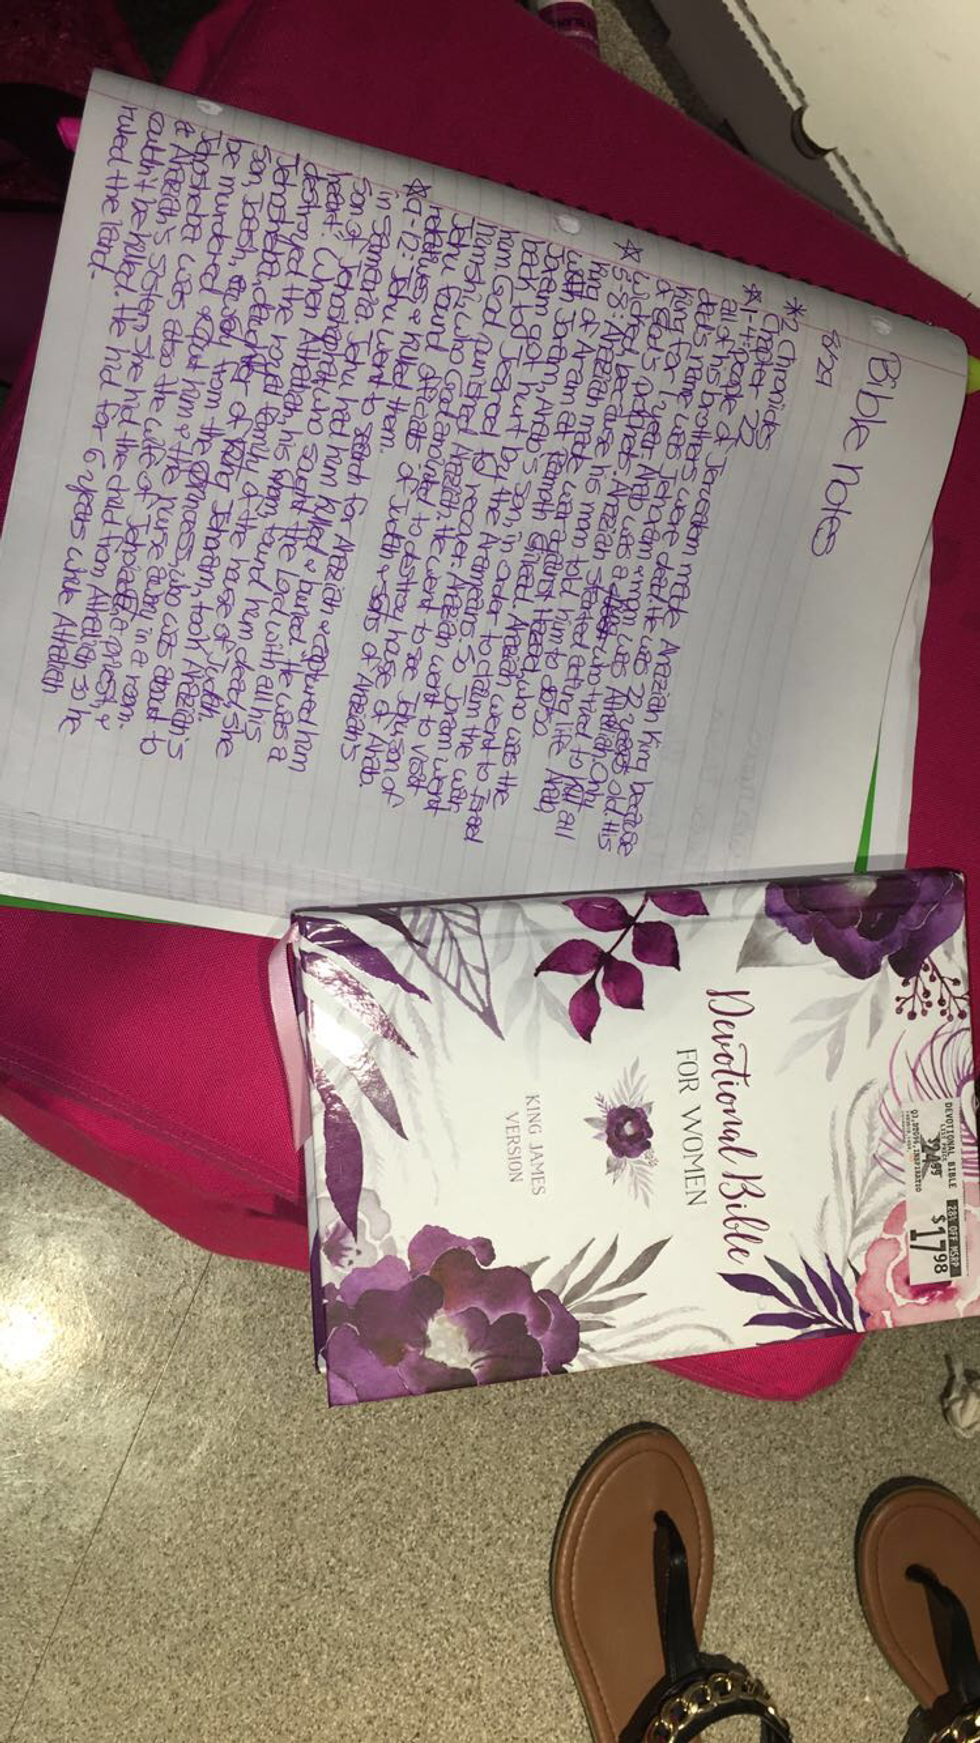 Bible Notes
8/29
*2 Chronicles
Chapter 22
☆1-4: People of Jerusalem made Ahaziah King because
all of his brothers were dead. He was 22 years old. His
dad's name was Jehoram & mom was Athaliah. Only
King for 1 year. Ahab was a who tried to kill all
of God's prophets. Ahaziah started acting like Ahab,
wicked, because his mom told him to do so.
☆5-8: Ahaziah made war against Hazael, who was the
King of Aram at Ramoth Gilead. Ahaziah went to Israel
with Joram, Ahab's son, in order to claim the win.
Joram got hurt by the Arameans so Joram went
back to Jezreel to recover. Ahaziah went to visit
him. God punished Ahaziah. He went to see Jehu, son of
Nimshi, who God anointed to destroy house of Ahab.
Jehu found officials of Judah & sons of Ahaziah's
relatives & killed them.
☆9-12: Jehu went to search for Ahaziah & captured him
in Samaria. Jehu had him killed & buried. "He was a
son of Jehoshaphat, who sought the Lord with all his
heart." When Athaliah, his mom, found him dead, she
destroyed the royal family of the house of Judah.
Jehosheba, daughter of King Jehoram, took Ahaziah's
son, Joash, away from the princess, who was about to
be murdered & put him & the nurse away in a room.
Jehosheba was also the wife of Jehoiada, a priest, &
Ahaziah's sister. She hid the child from Athaliah so he
couldn't be killed. He hid for 6 years while Athaliah
ruled the land.
Devotional Bible
FOR WOMEN
KING JAMES
VERSION
DEVOTIONAL BIBLE
LIST PRICE
$24.99
28% OFF MSRP
$17.98